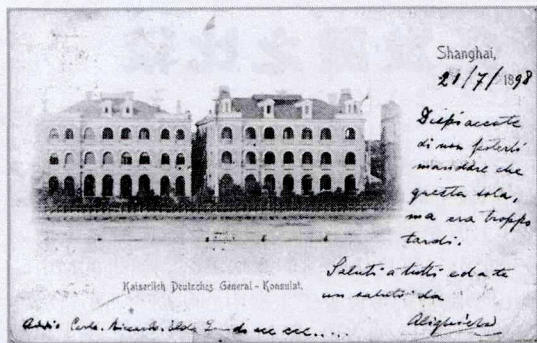 Shanghai,
21/7/1898
Dispiacente
di non poterti
mandare che
questa sola,
ma era troppo
tardi.
Saluti a tutti ed a te
un saluto da
Kaiserlich Deutsches General-Konsulat.
Addio Carlo. Riccardo. Elda ecc ecc.....